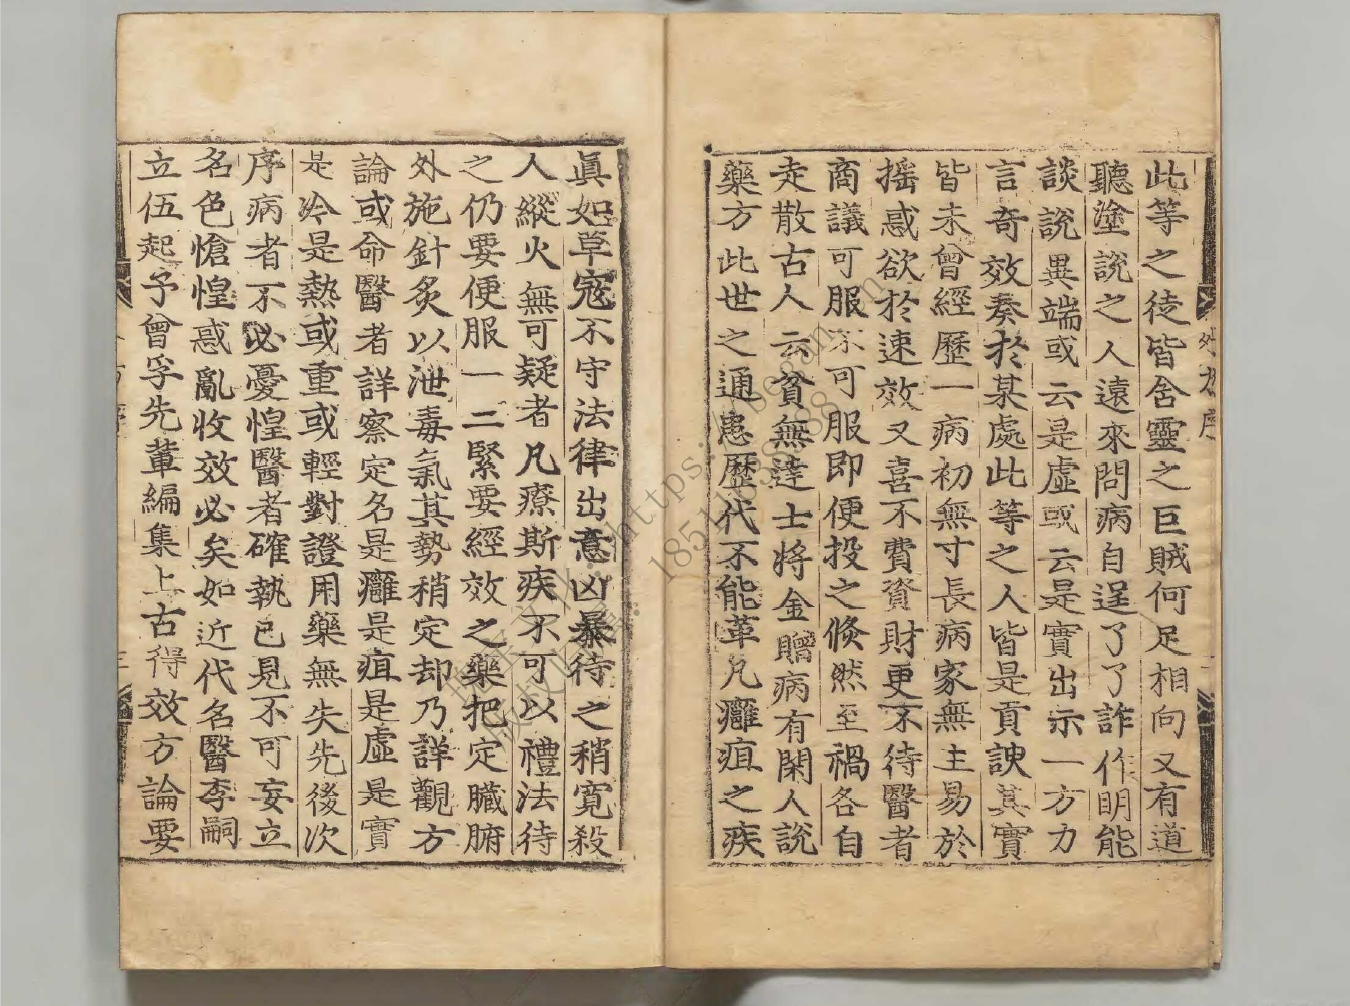 此等之徒皆舍靈之巨賊何足相向又有道
聽塗說之人遠來問病自逞了了詐作明能
談說異端或云是虛或云是實出示一方力
言奇效奏於某處此等之人皆是貢諛其實
皆未曾經歷一病初無寸長病家無主易於
搖惑欲於速效又喜不費資財更不待醫者
商議可服不可服即便投之倐然至禍各自
走散古人云貧無達士將金贈病有閑人說
藥方此世之通患歷代不能革凡癰疽之疾
眞如草寇不守法律出意凶暴待之稍寬殺
人縱火無可疑者凡療斯疾不可以禮法待
之仍要便服一二緊要經效之藥把定臟腑
外施針灸以泄毒氣其勢稍定却乃詳觀方
論或命醫者詳察定名是癰是疽是虛是實
是冷是熱或重或輕對證用藥無失先後次
序病者不必憂惶醫者確執已見不可妄立
名色愴惶惑亂收效必矣如近代名醫李嗣
立伍起予曾孚先輩編集上古得效方論要
序
https: